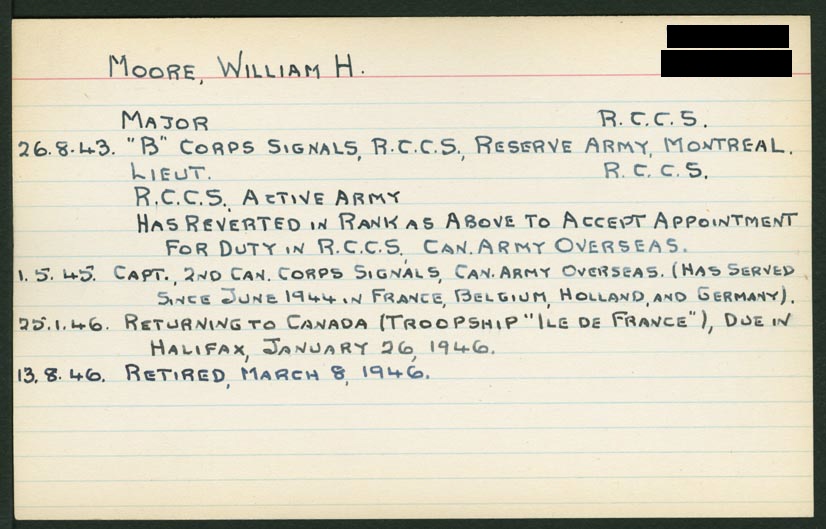 MOORE, WILLIAM H.
MAJOR R.C.C.S.
26.8.43. "B" CORPS SIGNALS, R.C.C.S., RESERVE ARMY, MONTREAL.
LIEUT. R.C.C.S.
R.C.C.S. ACTIVE ARMY
HAS REVERTED IN RANK AS ABOVE TO ACCEPT APPOINTMENT
FOR DUTY IN R.C.C.S. CAN. ARMY OVERSEAS.
1.5.45. CAPT., 2ND CAN. CORPS SIGNALS, CAN. ARMY OVERSEAS. (HAS SERVED
SINCE JUNE 1944 IN FRANCE, BELGIUM, HOLLAND, AND GERMANY).
25.1.46. RETURNING TO CANADA (TROOPSHIP "ILE DE FRANCE"), DUE IN
HALIFAX, JANUARY 26, 1946.
13.8.46. RETIRED, MARCH 8, 1946.